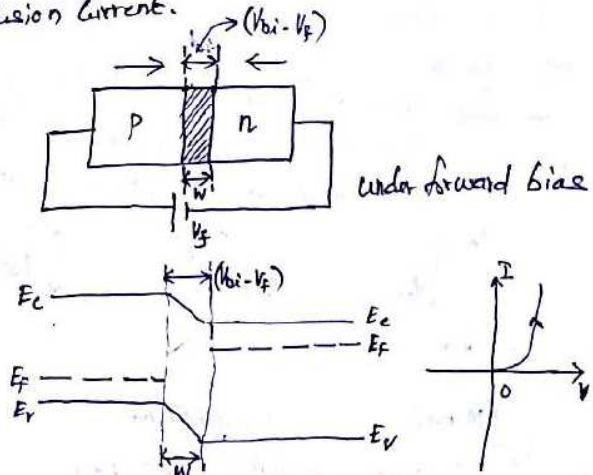 usion current.
(Vbi-Vf)
P
n
W
Vf
under forward bias
(Vbi-Vf)
Ec
Ec
EF
EF
Ev
Ev
W
I
O
V